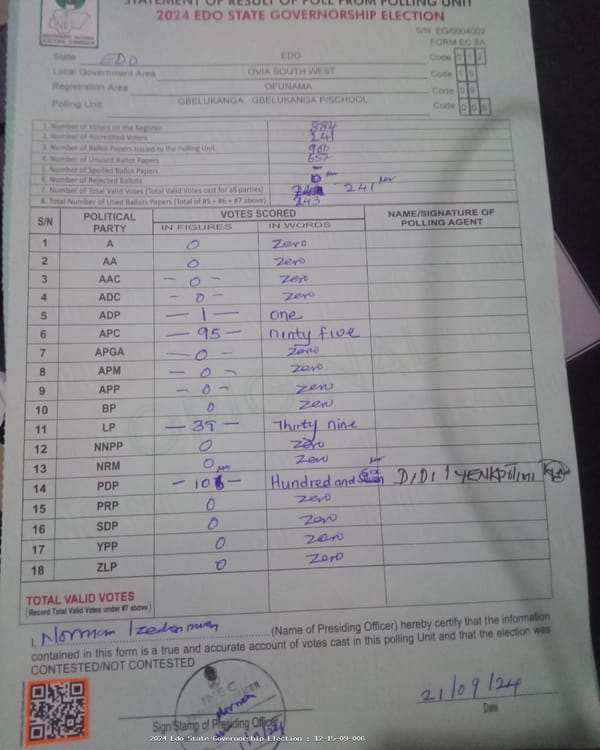 STATEMENT OF RESULT OF POLL FROM POLLING UNIT
2024 EDO STATE GOVERNORSHIP ELECTION
S/N EG/0004002
FORM EC 8A
State EDO EDO Code 012
Local Government Area OVIA SOUTH WEST Code 15
Registration Area OFUNAMA Code 09
Polling Unit GBELUKANGA, GBELUKANGA P/SCHOOL Code 006
1. Number of Voters on the Register
2. Number of Accredited Voters 241
3. Number of Ballot Papers Issued to the Polling Unit 900
4. Number of Unused Ballot Papers 657
5. Number of Spoiled Ballot Papers -
6. Number of Rejected Ballots
7. Number of Total Valid Votes (Total Valid Votes cast for all parties) 241
8. Total Number of Used Ballots Papers (Total of #5 + #6 + #7 above) 243
S/N POLITICAL PARTY VOTES SCORED NAME/SIGNATURE OF POLLING AGENT
IN FIGURES IN WORDS
1 A 0 Zero
2 AA 0 Zero
3 AAC - 0 - Zero
4 ADC - 0 - Zero
5 ADP - 1 - one
6 APC - 95 - ninty five
7 APGA - 0 - Zero
8 APM - 0 - Zero
9 APP - 0 - Zero
10 BP 0 Zero
11 LP - 39 - Thirty nine
12 NNPP 0 Zero
13 NRM 0 Zero
14 PDP - 106 - Hundred and Six DIDI
15 PRP 0 Zero
16 SDP 0 Zero
17 YPP 0 Zero
18 ZLP 0 Zero
TOTAL VALID VOTES
(Record Total Valid Votes under #7 above)
I, Norman (Name of Presiding Officer) hereby certify that the information
contained in this form is a true and accurate account of votes cast in this polling Unit and that the election was
CONTESTED/NOT CONTESTED
INEC
21/09/24
Sign/Stamp of Presiding Officer
Date
2024 Edo State Governorship Election : 12-15-09-006